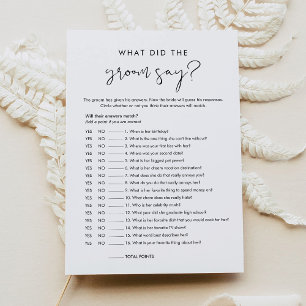 WHAT DID THE
groom say?
The groom has given his answers. Now the bride will guess his responses.
Circle whether or not you think their answers will match.
Will their answers match?
Add a point if you are correct.
YES NO ______ 1. When is her birthday?
YES NO ______ 2. What is the one thing she can't live without?
YES NO ______ 3. Where was your first kiss with her?
YES NO ______ 4. Where was your second date?
YES NO ______ 5. What is her biggest pet peeve?
YES NO ______ 6. What is her dream vacation destination?
YES NO ______ 7. What does she do that really annoys you?
YES NO ______ 8. What do you do that really annoys her?
YES NO ______ 9. What is her favorite thing to spend money on?
YES NO ______ 10. What chore does she really hate?
YES NO ______ 11. Who is her celebrity crush?
YES NO ______ 12. What year did she graduate high school?
YES NO ______ 13. What is her favorite dish that you would cook for her?
YES NO ______ 14. What is her favorite TV show?
YES NO ______ 15. What word best describes her?
YES NO ______ 16. What is your favorite thing about her?
______ TOTAL POINTS